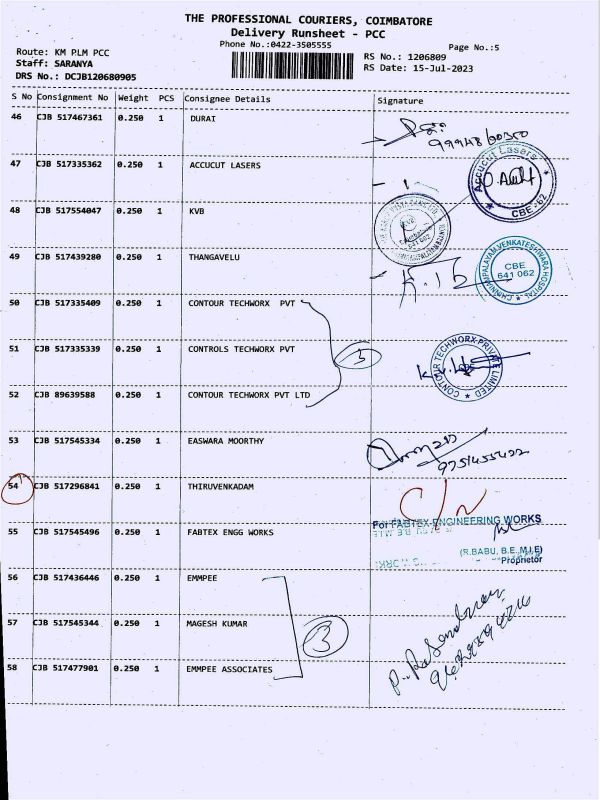 THE PROFESSIONAL COURIERS, COIMBATORE
Delivery Runsheet - PCC
Phone No.:0422-3505555
Page No.:5
Route: KM PLM PCC
Staff: SARANYA
DRS No.: DCJB120680905
RS No.: 1206809
RS Date: 15-Jul-2023
S No Consignment No Weight PCS Consignee Details Signature
46 CJB 517467361 0.250 1 DURAI
47 CJB 517335362 0.250 1 ACCUCUT LASERS
Accucut Lasers
CBE-62
48 CJB 517554047 0.250 1 KVB
KVB
641 062
49 CJB 517439280 0.250 1 THANGAVELU
CHINNIMPALAYAM VENKATESHWARA HOSPITAL
CBE
641 062
50 CJB 517335409 0.250 1 CONTOUR TECHWORX PVT
51 CJB 517335339 0.250 1 CONTROLS TECHWORX PVT
3
CONTOUR TECHWORX PRIVATE LIMITED
52 CJB 89639588 0.250 1 CONTOUR TECHWORX PVT LTD
53 CJB 517545334 0.250 1 EASWARA MOORTHY
54 CJB 517296841 0.250 1 THIRUVENKADAM
C/N
For FABTEX ENGINEERING WORKS
55 CJB 517545496 0.250 1 FABTEX ENGG WORKS
(R.BABU, B.E, M.I.E)
Proprietor
56 CJB 517436446 0.250 1 EMMPEE
57 CJB 517545344 0.250 1 MAGESH KUMAR
3
58 CJB 517477901 0.250 1 EMMPEE ASSOCIATES